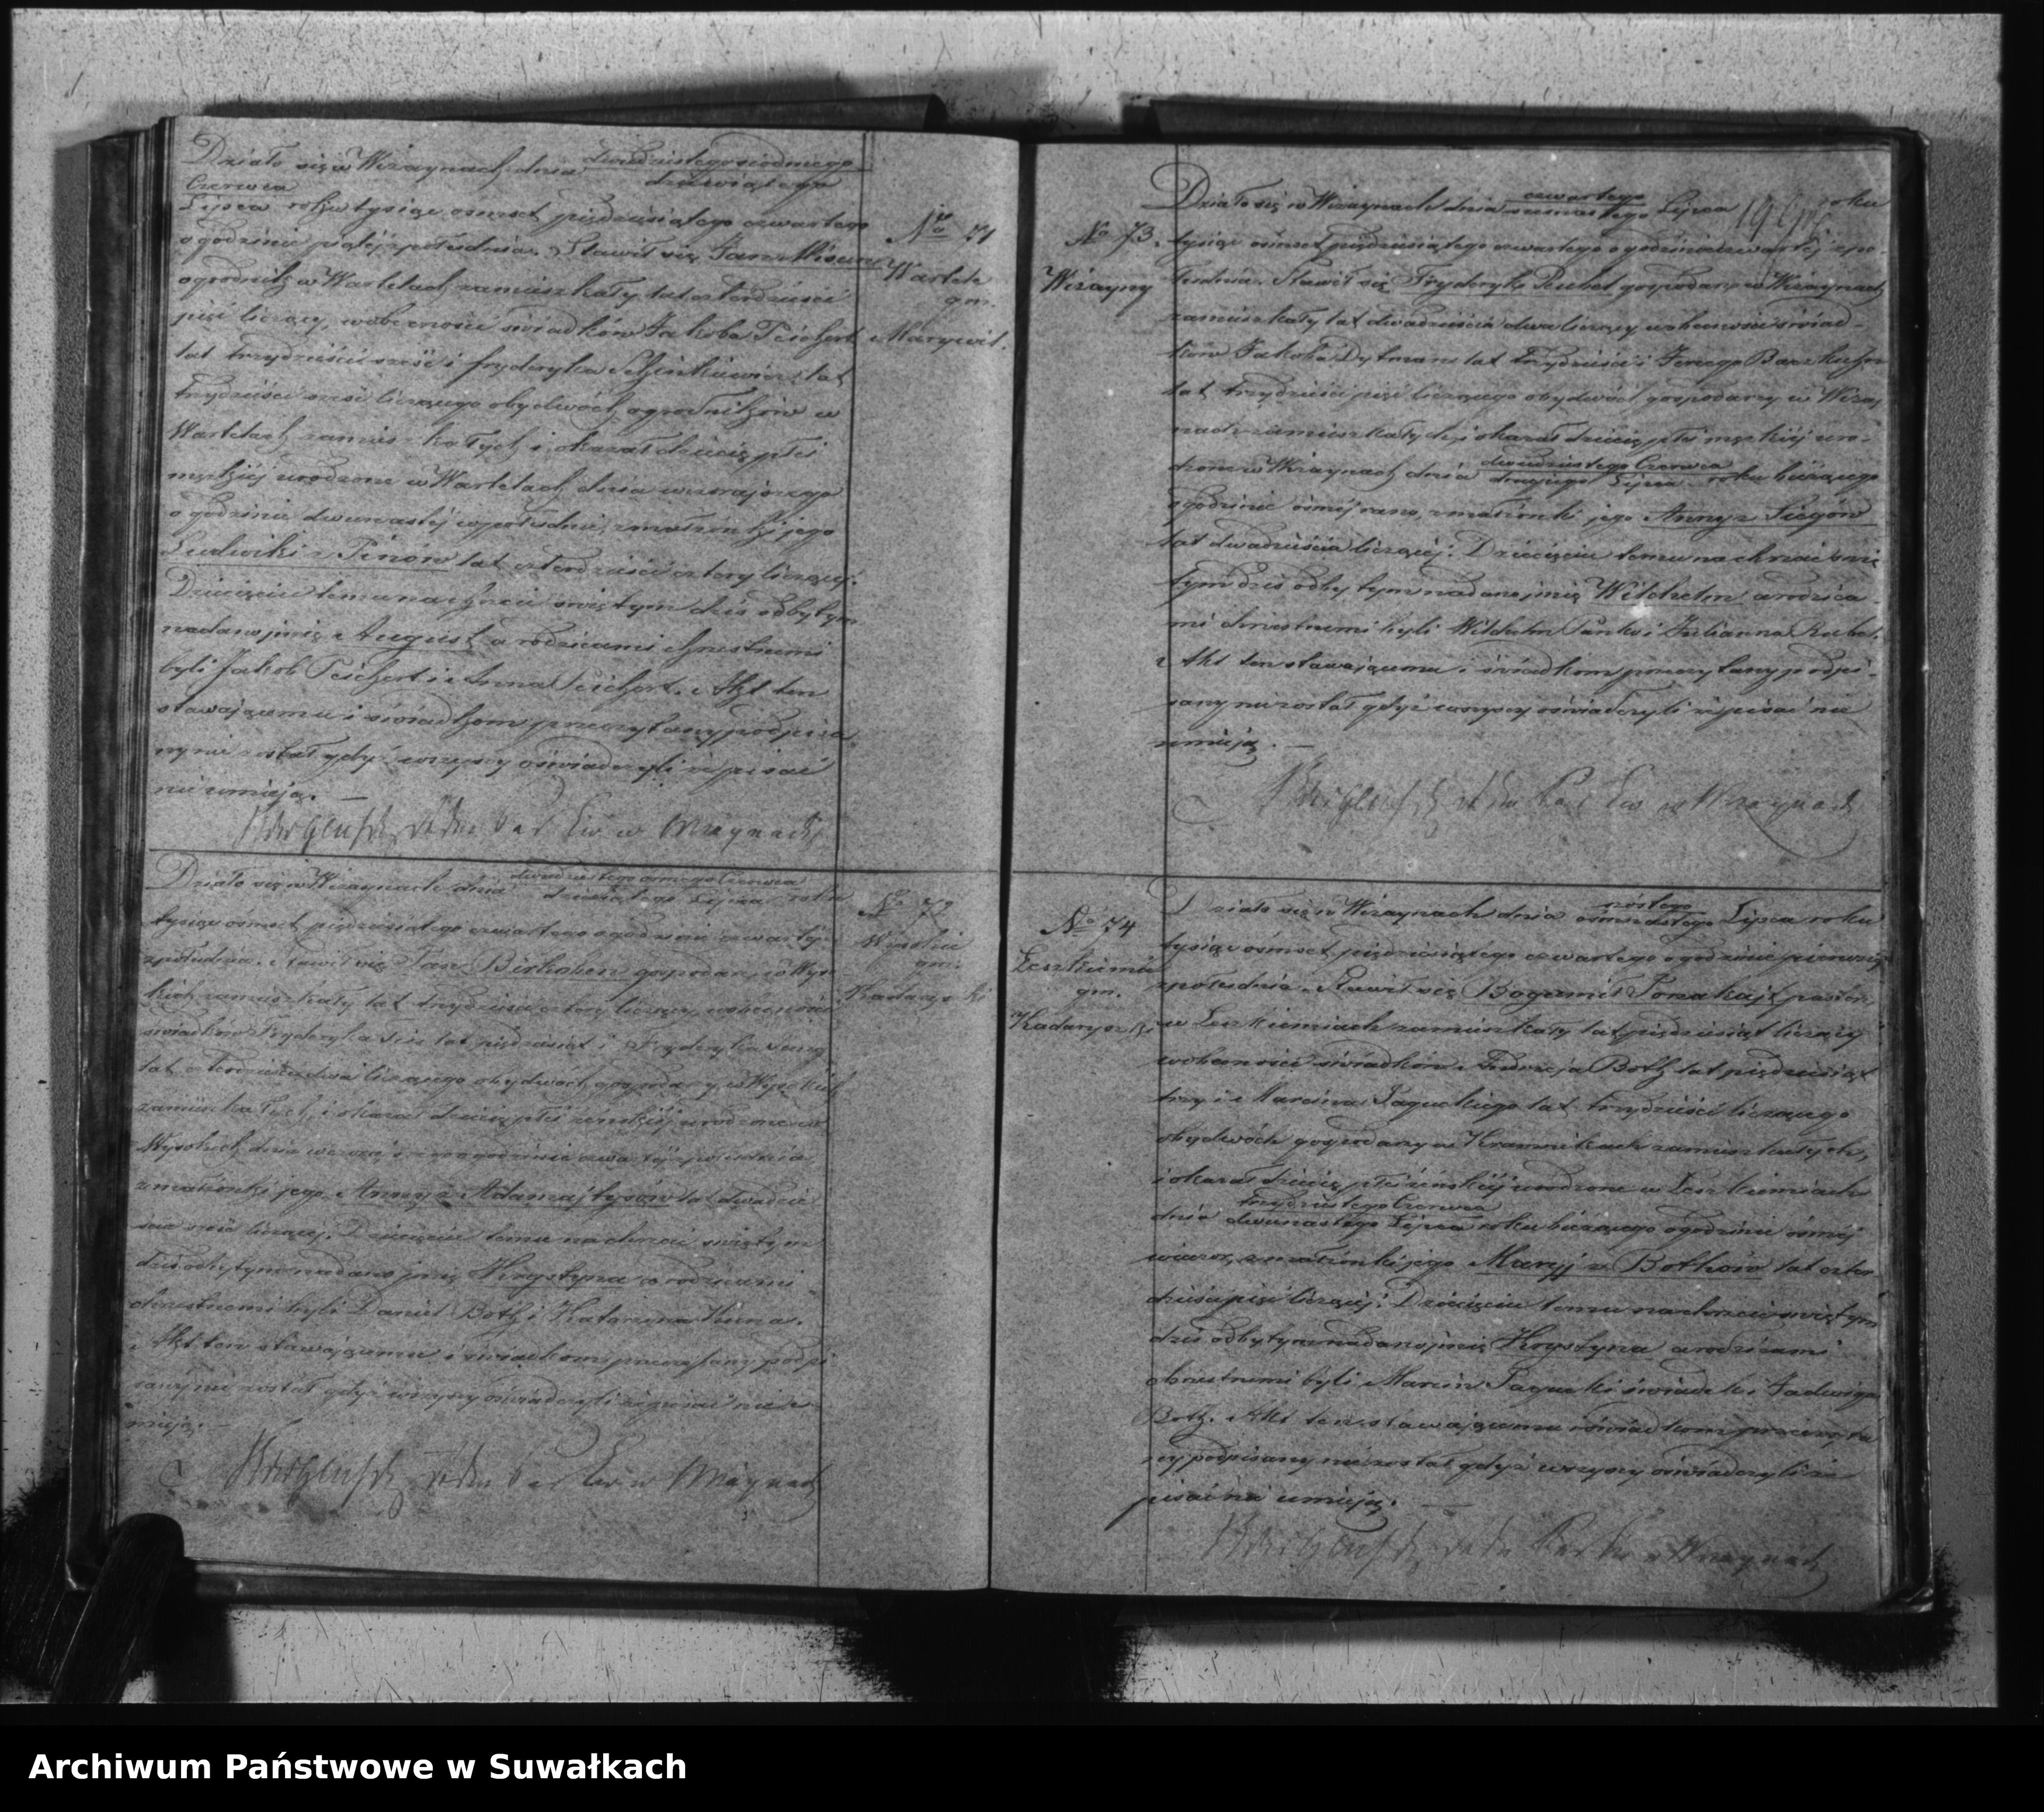 Działo się w Wiżaynach dnia dwudziestego siódmego
dziewiątego
Czerwca
Lipca roku tysiąc osmset pięćdziesiątego czwartego
o godzinie piątej z południa. Stawił się Jan
ogrodnik w Wartelach zamieszkały lat czterdzieści
pięć liczący, w obecności świadków Jakoba Teichert
lat trzydzieści sześć i fryderyka lat
trzydzieści sześć liczącego obydwóch ogrodników w
Wartelach zamieszkałych i okazał dziecię płci
męzkiej urodzone w Wartelach dnia wczorajszego
o godzinie dwunastej w południe, z małżonki jego
Ludwiki z lat czterdzieści cztery liczącej.
Dziecięciu temu na chrzcie świętym dziś odbytym
nadano imię August a rodzicami chrzestnemi
byli Jakob Teichert i Anna Teichert. Akt ten
stawającemu i świadkom przeczytany podpisa
ny nie został gdyż wszyscy oświadczyli iż pisać
nie umieją. —
w Wiżaynach
No 71
Wartele
gm.
Marywil.
Działo się w Wiżaynach dnia dwudziestego osmego Czerwca
dziesiątego Lipca roku
tysiąc ośmset pięćdziesiątego czwartego o godzinie czwartej
z południa. Stawił się Jan gospodarz w Wyso
kich zamieszkały lat trzydzieści cztery liczący, w obecności
świadków Fryderyka lat pięćdziesiąt i Fryderyka
lat czterdzieści dwa liczącego obydwóch gospodarzy w Wysokich
zamieszkałych, i okazał dziecię płci żeńskiej urodzone w
Wysokich dnia wczorajszego o godzinie czwartej z południa,
z małżonki jego Anny z lat dwadzie
ścia sześć liczącej. Dziecięciu temu na chrzcie świętym
dziś odbytym nadano imię Krystyna a rodzicami
chrzestnemi byli Daniel Both i Katarzyna
Akt ten stawającemu i świadkom przeczytany podpi
sany nie został gdyż wszyscy oświadczyli iż pisać nie u
mieją. —
w Wiżaynach
No 72
Wysokie
gm.
Kadaryszki
196
Działo się w Wiżaynach dnia czwartego
szesnastego Lipca roku
No 73.
Wiżayny
tysiąc ośmset pięćdziesiątego czwartego o godzinie czwartej z po-
łudnia. Stawił się Fryderyk gospodarz w Wiżaynach
zamieszkały lat dwadzieścia dwa liczący w obecności świad-
ków Jakoba Dytman lat trzydzieści i Jerzego
lat trzydzieści pięć liczącego obydwóch gospodarzy w Wiżaj
nach zamieszkałych, i okazał dziecię płci męzkiej uro-
dzone w Wiżaynach dnia dwudziestego Czerwca
drugiego Lipca roku bieżącego
o godzinie ósmej rano, z małżonki jego Anny z
lat dwadzieścia liczącej. Dziecięciu temu na chrzcie świę
tym dziś odbytym nadano imię Wilchelm a rodzica-
mi chrzestnemi byli Wilchelm i Julianna
Akt ten stawającemu i świadkom przeczytany podpi-
sany nie został gdyż wszyscy oświadczyli iż pisać nie
umieją. —
w Wiżaynach
Działo się w Wiżaynach dnia szóstego
osmnastego Lipca roku
No 74
gm.
Kadaryszki
tysiąc ośmset pięćdziesiątego czwartego o godzinie pierwszej
z południa. Stawił się Bogumił
w zamieszkały lat pięćdziesiąt liczący
w obecności świadków Andrzeja Both lat pięćdziesiąt
trzy i Marcina lat trzydzieści liczącego
obydwóch gospodarzy w zamieszkałych,
i okazał dziecię płci żeńskiej urodzone w
dnia trzydziestego Czerwca
dwunastego Lipca roku bieżącego o godzinie ósmej
wieczor, z małżonki jego Maryj z Bothów lat czter
dzieści pięć liczącej. Dziecięciu temu na chrzcie świętym
dziś odbytym nadano imię Krystyna a rodzicami
chrzestnemi byli Marcin świadek i Jadwiga
Both. Akt ten stawającemu i świadkom przeczyta
ny podpisany nie został gdyż wszyscy oświadczyli iż
pisać nie umieją. —
w Wiżaynach
Archiwum Państwowe w Suwałkach